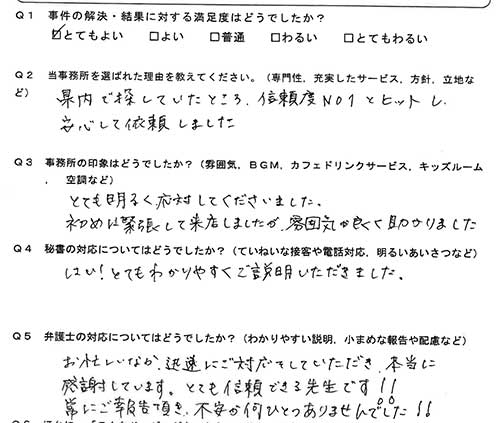 Q1 事件の解決・結果に対する満足度はどうでしたか?
☑とてもよい □よい □普通 □わるい □とてもわるい
Q2 当事務所を選ばれた理由を教えてください。(専門性，充実したサービス，方針，立地な
ど)
県内で探していたところ、信頼度NO1とヒットし、
安心して依頼しました
Q3 事務所の印象はどうでしたか?(雰囲気，BGM，カフェドリンクサービス，キッズルーム
， 空調など)
とても明るく応対してくださいました、
初めは緊張して来店しましたが、雰囲気が良くて助かりました
Q4 秘書の対応についてはどうでしたか?(ていねいな接客や電話対応，明るいあいさつなど)
はい!とてもわかりやすくご説明いただきました、
Q5 弁護士の対応についてはどうでしたか?(わかりやすい説明，小まめな報告や配慮など)
お忙しいなか、迅速にご対応をしていただき、本当に
感謝しています。とても信頼できる先生です!!
常にご報告頂き、不安が何ひとつありませんでした!!